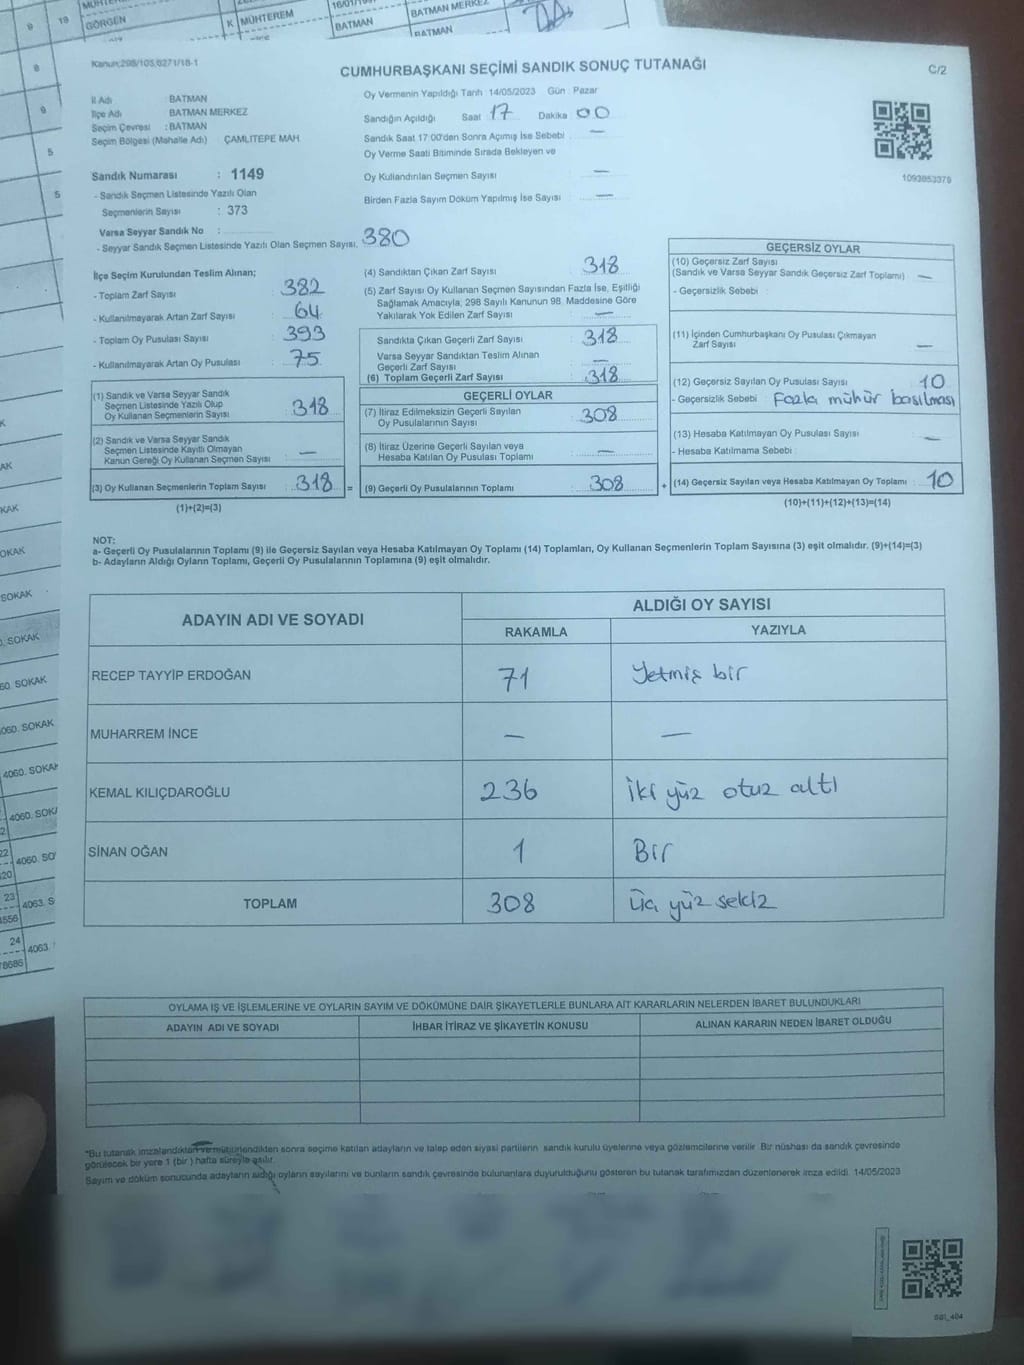 19
GÖRGÜN
K MÜHTEREM
BATMAN
BATMAN MERKEZ
BATMAN
Kanun;298/105,6271/18-1
CUMHURBAŞKANI SEÇİMİ SANDIK SONUÇ TUTANAĞI
C/2
İl Adı : BATMAN
İlçe Adı BATMAN MERKEZ
Seçim Çevresi : BATMAN
Seçim Bölgesi (Mahalle Adı) : ÇAMLITEPE MAH
Oy Vermenin Yapıldığı Tarih :14/05/2023 Gün : Pazar
Sandığın Açıldığı Saat 17 Dakika 00
Sandık Saat 17:00'den Sonra Açılmış İse Sebebi : —
Oy Verme Saati Bitiminde Sırada Bekleyen ve
Oy Kullandırılan Seçmen Sayısı : —
Birden Fazla Sayım Döküm Yapılmış İse Sayısı : —
1093953379
Sandık Numarası : 1149
- Sandık Seçmen Listesinde Yazılı Olan
Seçmenlerin Sayısı : 373
Varsa Seyyar Sandık No :
- Seyyar Sandık Seçmen Listesinde Yazılı Olan Seçmen Sayısı. 380
İlçe Seçim Kurulundan Teslim Alınan;
- Toplam Zarf Sayısı : 382
- Kullanılmayarak Artan Zarf Sayısı : 64
- Toplam Oy Pusulası Sayısı : 393
- Kullanılmayarak Artan Oy Pusulası : 75
(1) Sandık ve Varsa Seyyar Sandık
Seçmen Listesinde Yazılı Olup
Oy Kullanan Seçmenlerin Sayısı : 318
(2) Sandık ve Varsa Seyyar Sandık
Seçmen Listesinde Kayıtlı Olmayan
Kanun Gereği Oy Kullanan Seçmen Sayısı : —
(3) Oy Kullanan Seçmenlerin Toplam Sayısı : 318 =
(1)+(2)=(3)
(4) Sandıktan Çıkan Zarf Sayısı : 318
(5) Zarf Sayısı Oy Kullanan Seçmen Sayısından Fazla İse, Eşitliği
Sağlamak Amacıyla, 298 Sayılı Kanunun 98. Maddesine Göre
Yakılarak Yok Edilen Zarf Sayısı : —
Sandıkta Çıkan Geçerli Zarf Sayısı : 318
Varsa Seyyar Sandıktan Teslim Alınan
Geçerli Zarf Sayısı : —
(6) Toplam Geçerli Zarf Sayısı : 318
GEÇERLİ OYLAR
(7) İtiraz Edilmeksizin Geçerli Sayılan
Oy Pusulalarının Sayısı : 308
(8) İtiraz Üzerine Geçerli Sayılan veya
Hesaba Katılan Oy Pusulası Toplamı : —
(9) Geçerli Oy Pusulalarının Toplamı : 308 +
GEÇERSİZ OYLAR
(10) Geçersiz Zarf Sayısı
(Sandık ve Varsa Seyyar Sandık Geçersiz Zarf Toplamı) : —
- Geçersizlik Sebebi :
(11) İçinden Cumhurbaşkanı Oy Pusulası Çıkmayan
Zarf Sayısı : —
(12) Geçersiz Sayılan Oy Pusulası Sayısı : 10
- Geçersizlik Sebebi : Fazla mühür basılması
(13) Hesaba Katılmayan Oy Pusulası Sayısı : —
- Hesaba Katılmama Sebebi :
(14) Geçersiz Sayılan veya Hesaba Katılmayan Oy Toplamı : 10
(10)+(11)+(12)+(13)=(14)
NOT:
a- Geçerli Oy Pusulalarının Toplamı (9) ile Geçersiz Sayılan veya Hesaba Katılmayan Oy Toplamı (14) Toplamları, Oy Kullanan Seçmenlerin Toplam Sayısına (3) eşit olmalıdır. (9)+(14)=(3)
b- Adayların Aldığı Oyların Toplamı, Geçerli Oy Pusulalarının Toplamına (9) eşit olmalıdır.
ADAYIN ADI VE SOYADI
ALDIĞI OY SAYISI
RAKAMLA YAZIYLA
RECEP TAYYİP ERDOĞAN 71 Yetmiş bir
MUHARREM İNCE — —
KEMAL KILIÇDAROĞLU 236 iki yüz otuz altı
SİNAN OĞAN 1 Bir
TOPLAM 308 üç yüz sekiz
OYLAMA İŞ VE İŞLEMLERİNE VE OYLARIN SAYIM VE DÖKÜMÜNE DAİR ŞİKAYETLERLE BUNLARA AİT KARARLARIN NELERDEN İBARET BULUNDUKLARI
ADAYIN ADI VE SOYADI İHBAR İTİRAZ VE ŞİKAYETİN KONUSU ALINAN KARARIN NEDEN İBARET OLDUĞU
*Bu tutanak imzalandıktan ve mühürlendikten sonra seçime katılan adayların ve talep eden siyasi partilerin sandık kurulu üyelerine veya gözlemcilerine verilir. Bir nüshası da sandık çevresinde
görülecek bir yere 1 (bir ) hafta süreyle asılır.
Sayım ve döküm sonucunda adayların aldığı oyların sayılarını ve bunların sandık çevresinde bulunanlara duyurulduğunu gösteren bu tutanak tarafımızdan düzenlenerek imza edildi. 14/05/2023
9
8
9
5
5
K
AK
KAK
OKAK
SOKAK
SOKAK
60. SOKAK
060. SOKAK
4060. SOKAK
4060. SOK
22
4060. SO
20
23
4063. S
4556
24
4063.
78686